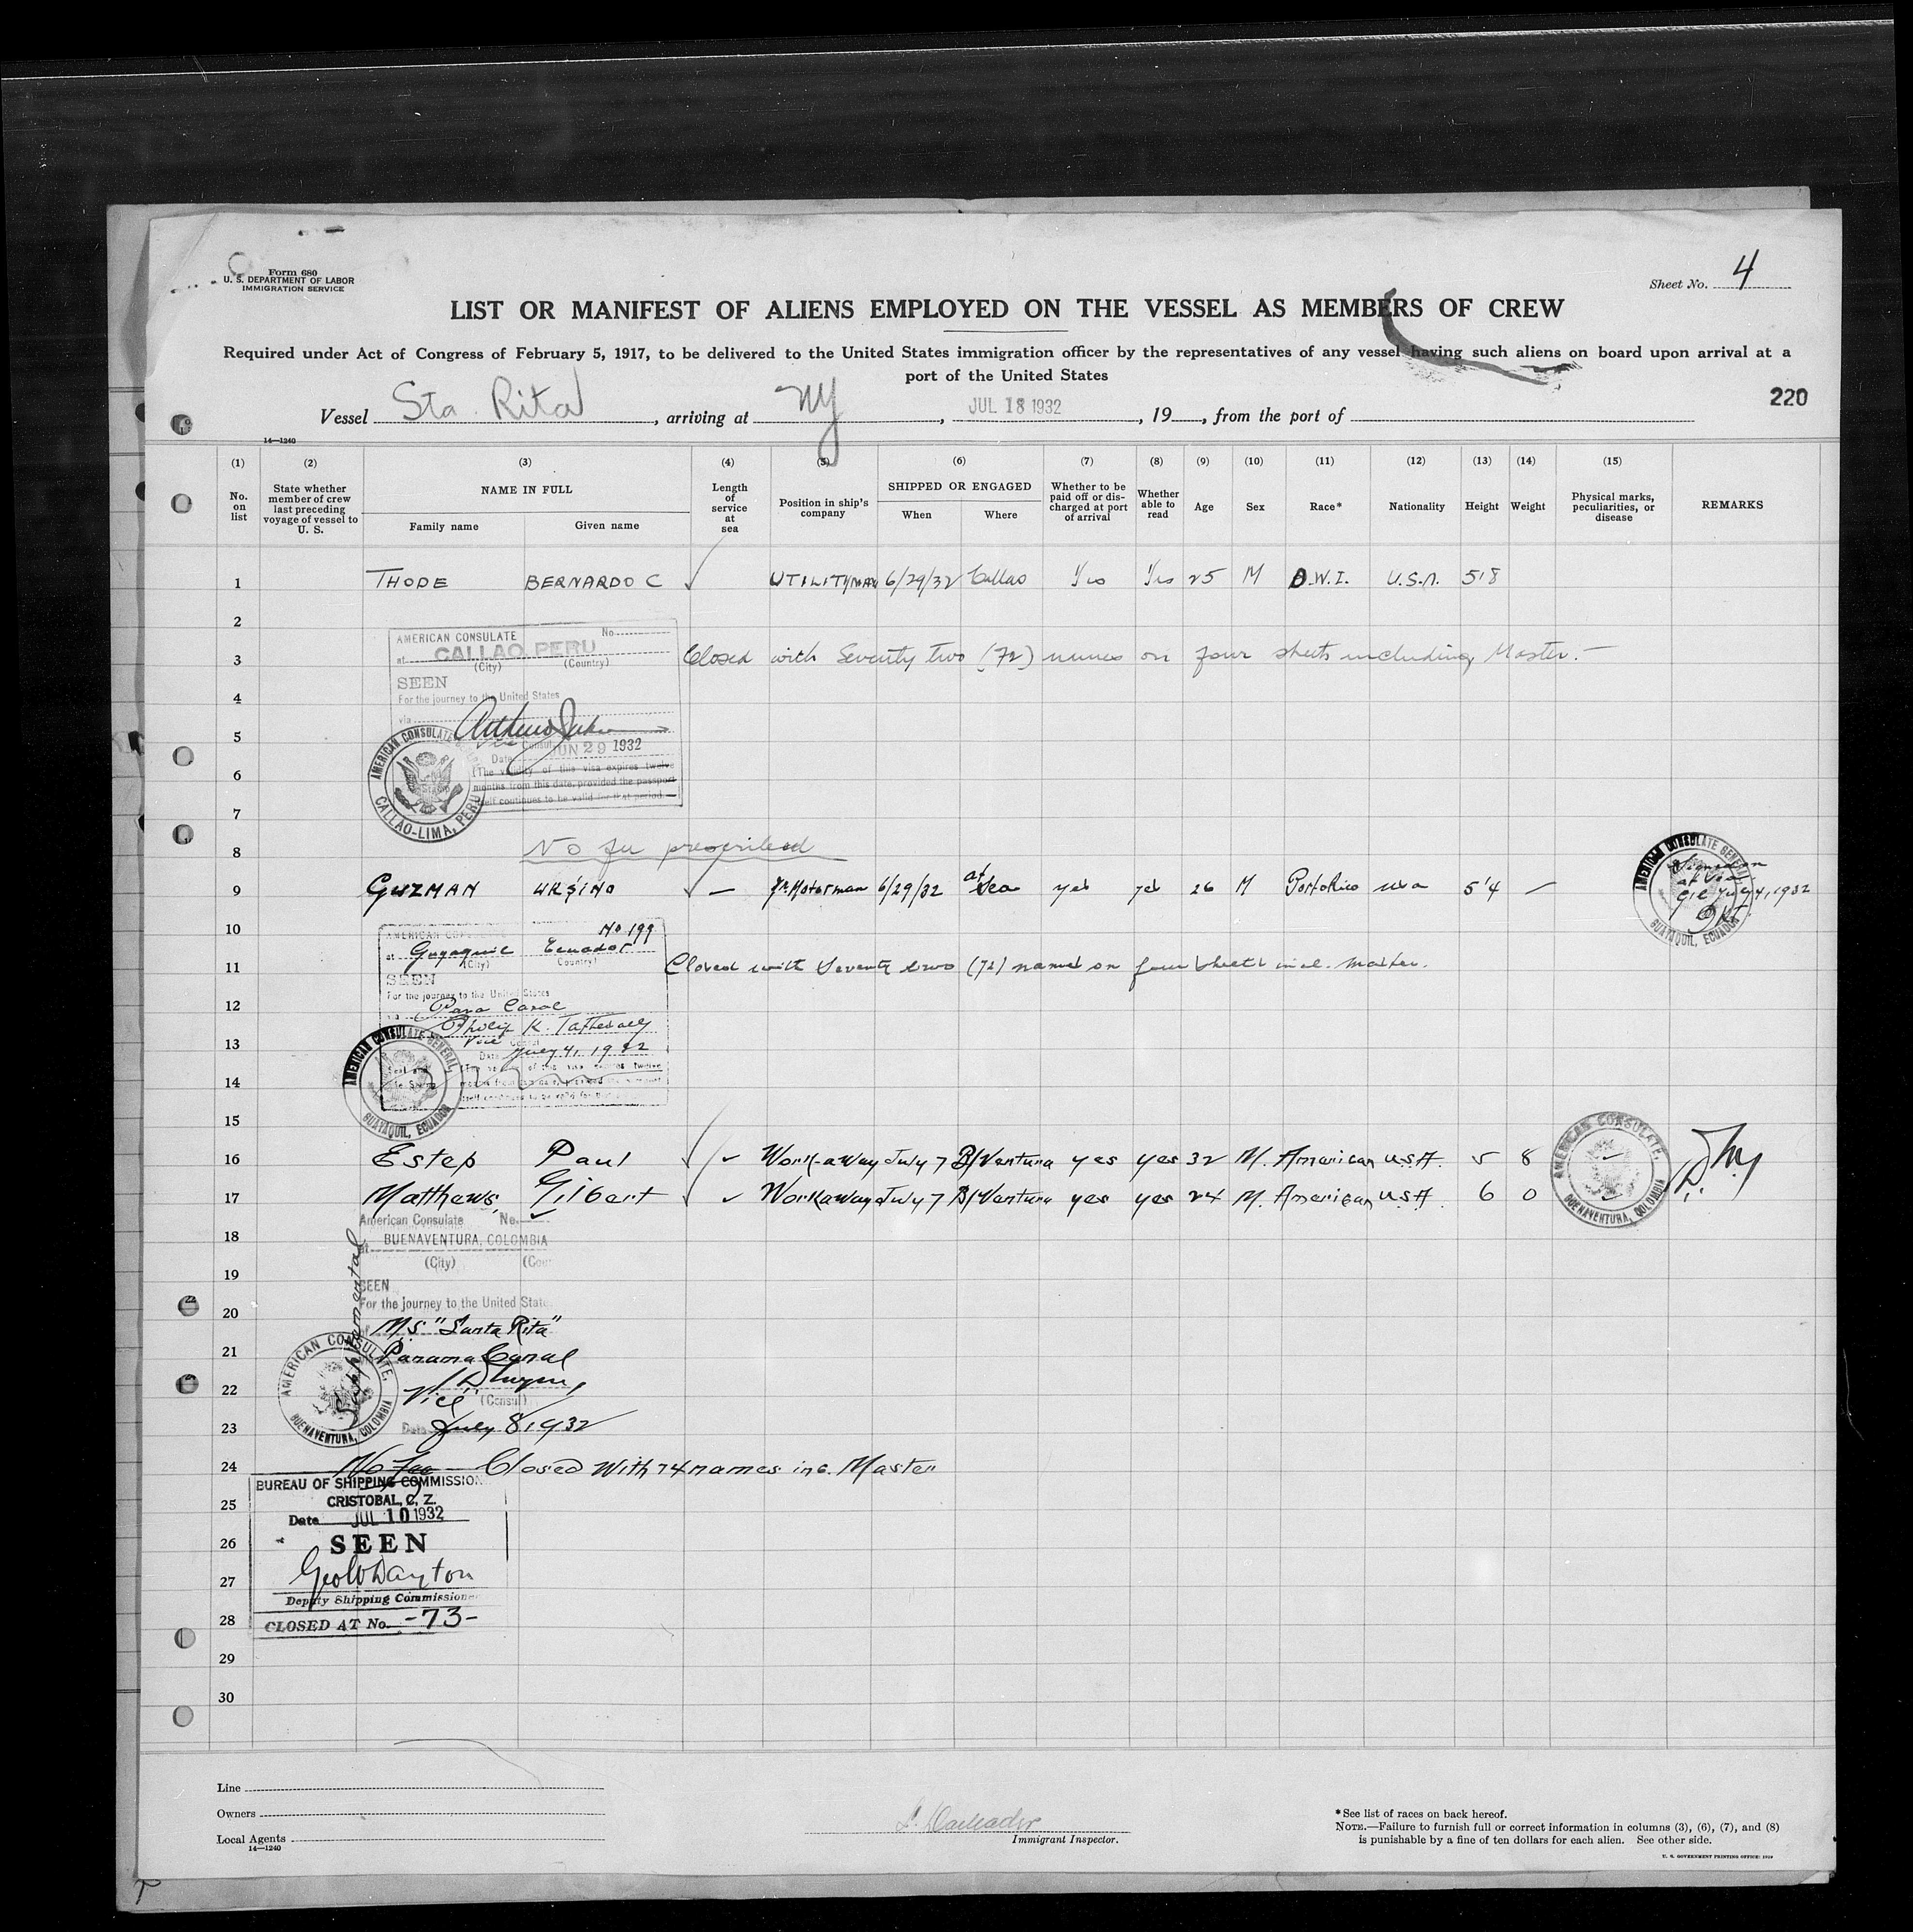 Form 680
U. S. DEPARTMENT OF LABOR
IMMIGRATION SERVICE
Sheet No. 4
LIST OR MANIFEST OF ALIENS EMPLOYED ON THE VESSEL AS MEMBERS OF CREW
Required under Act of Congress of February 5, 1917, to be delivered to the United States immigration officer by the representatives of any vessel having such aliens on board upon arrival at a
port of the United States
220
Vessel Sta. Rita, arriving at NY, JUL 18 1932, 19, from the port of
14—1240
(1) (2) (3) (4) (5) (6) (7) (8) (9) (10) (11) (12) (13) (14) (15)
No. on list
State whether member of crew last preceding voyage of vessel to U. S.
NAME IN FULL
Family name Given name
Length of service at sea
Position in ship's company
SHIPPED OR ENGAGED
When Where
Whether to be paid off or discharged at port of arrival
Whether able to read
Age
Sex
Race*
Nationality
Height
Weight
Physical marks, peculiarities, or disease
REMARKS
1 THODE BERNARDO C UTILITYMAN 6/29/32 Callao Yes Yes 25 M D.W.I. U.S.A. 5'8
2
AMERICAN CONSULATE No.
at CALLAO, PERU
(City) (Country)
3 Closed with Seventy two (72) names on four sheets including Master.—
SEEN
For the journey to the United States
4
via
5
Vice Consul
Date JUN 29 1932
6
(The validity of this visa expires twelve
months from this date, provided the passport
itself continues to be valid for that period.
AMERICAN CONSULATE
CALLAO-LIMA, PERU
7
8 No fee prescribed
9 GUZMAN URSINO — Jr. Motorman 6/29/32 at Sea yes yes 26 M PortoRico usa 5'4 —
AMERICAN CONSULATE GENERAL
GUAYAQUIL, ECUADOR
at Sea
July 4, 1932
10
AMERICAN No 199
at Guyaquil Ecuador
(City) Country)
11 Closed with Seventy two (72) names on four sheets incl. Master.
SEEN
For the journey to the United States
12
via Pana Canal
Philip K. Tattersall
13
Vice Consul
Date July 4, 1932
14
AMERICAN CONSULATE GENERAL,
GUAYAQUIL, ECUADOR
15
16 Estep Paul Work-away July 7 B/Ventura yes yes 32 M. American U.S.A. 5 8
17 Matthews, Gilbert Workaway July 7 B/Ventura yes yes 24 M. American USA 6 0
AMERICAN CONSULATE,
BUENAVENTURA, COLOMBIA
American Consulate No.
18
at BUENAVENTURA, COLOMBIA
(City)
19
SEEN
For the journey to the United State
Supplemental
20
M/S "Santa Rita"
21
Panama Canal
22
Vice (Consul)
23
Date July 8, 1932
AMERICAN CONSULATE,
BUENAVENTURA, COLOMBIA
24 No Fee Closed With 74 names inc. Master
BUREAU OF SHIPPING COMMISSION
CRISTOBAL, C. Z.
25
Date JUL 10 1932
26
SEEN
27
Geo W Dayton
Deputy Shipping Commissioner
28
CLOSED AT No. -73-
29
30
Line
Owners
Local Agents
14—1240
Immigrant Inspector.
*See list of races on back hereof.
NOTE.—Failure to furnish full or correct information in columns (3), (6), (7), and (8)
is punishable by a fine of ten dollars for each alien. See other side.
U. S. GOVERNMENT PRINTING OFFICE: 1929